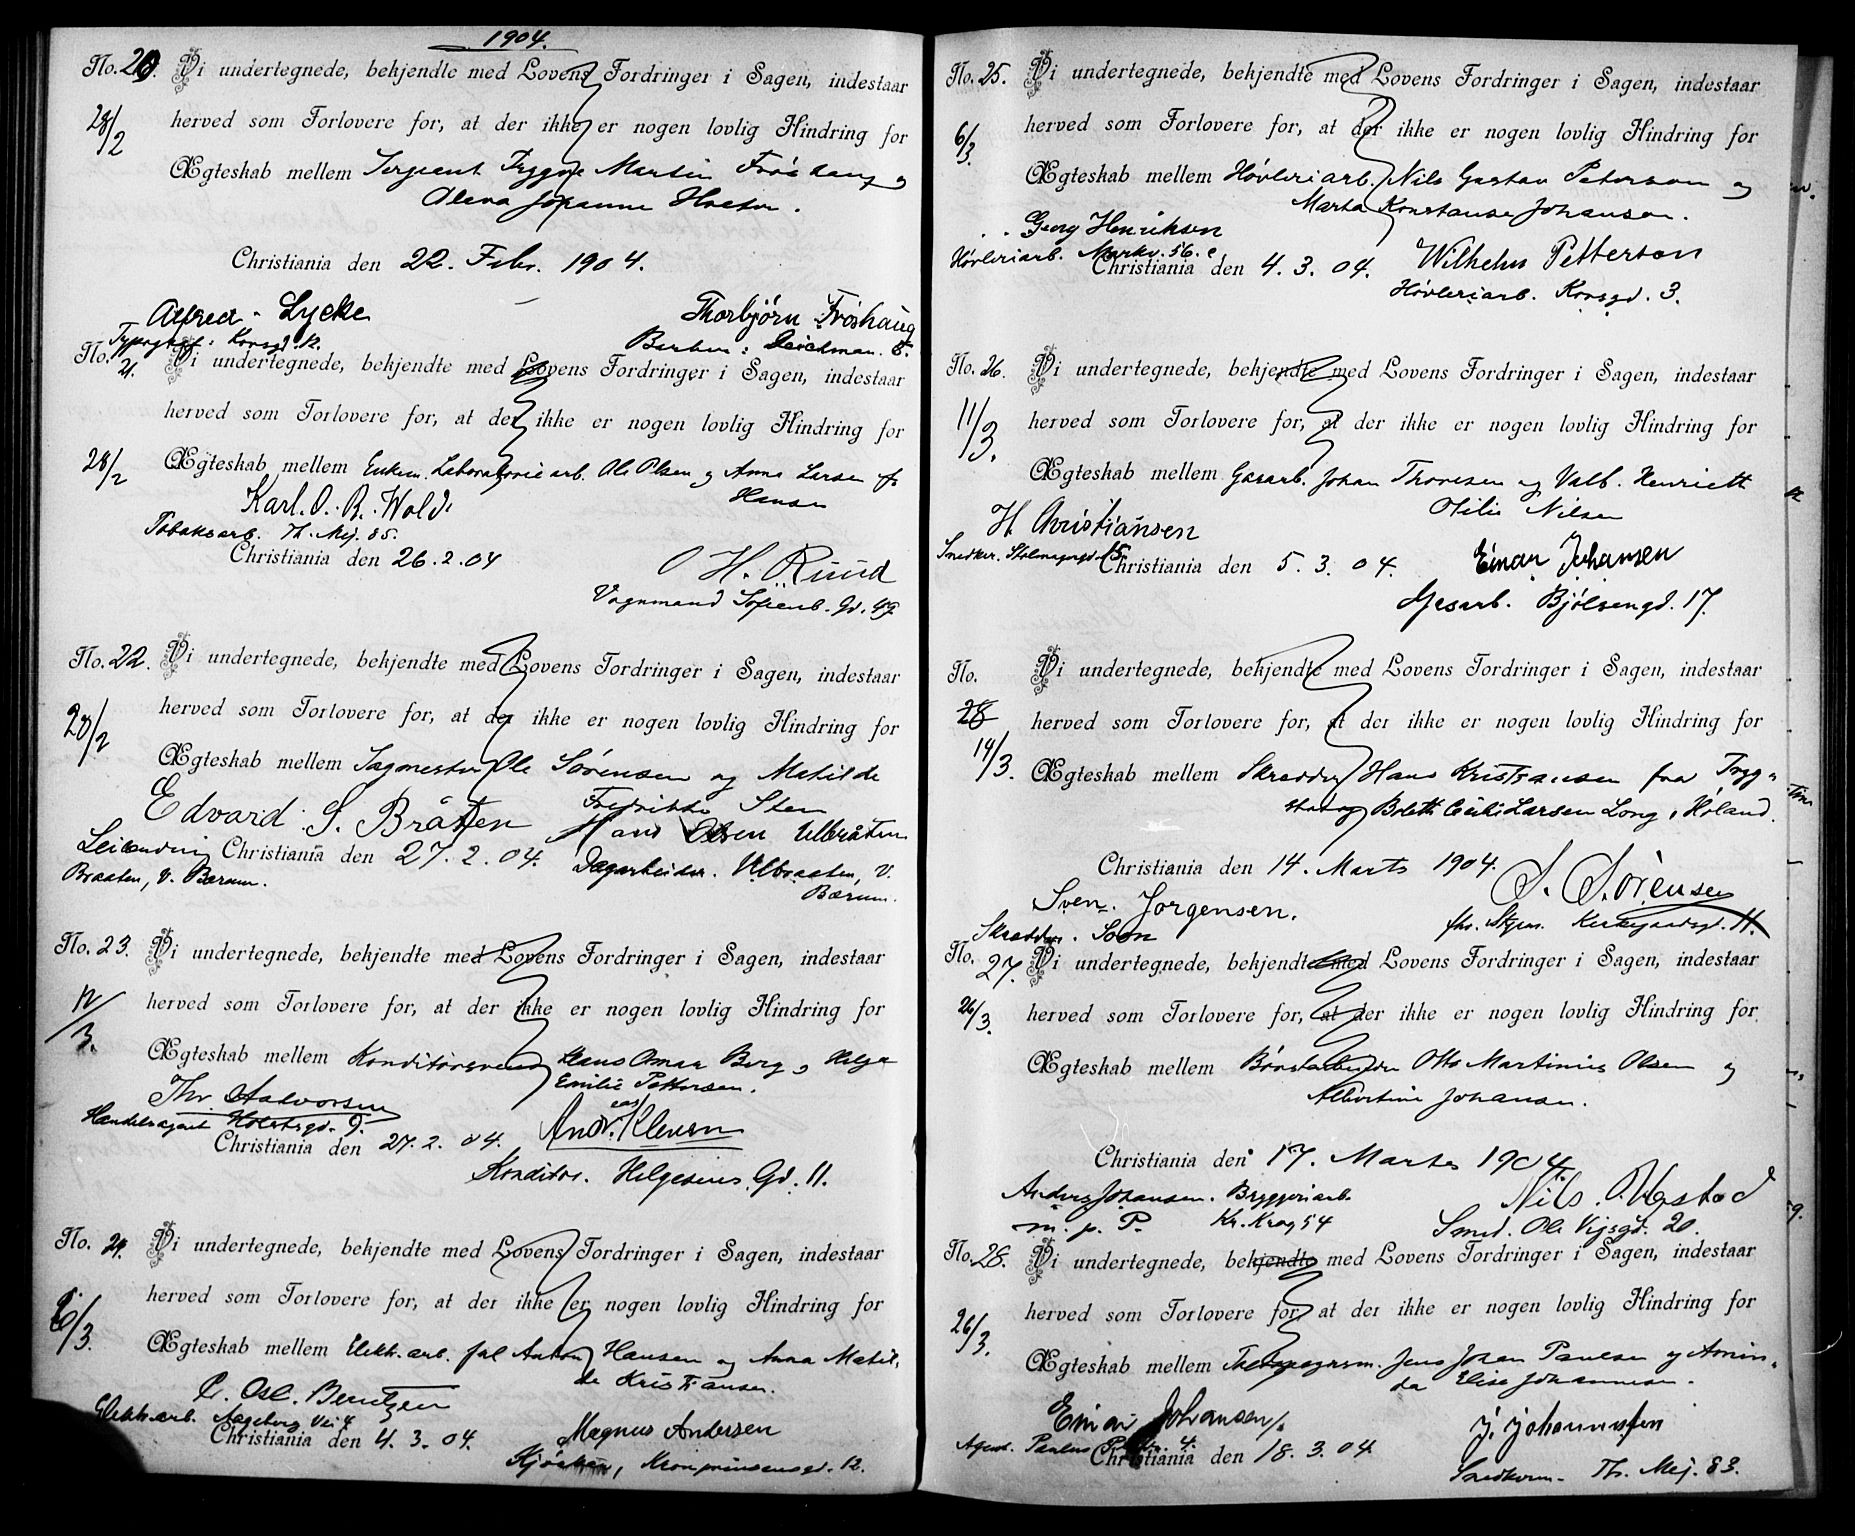 1904.
No. 20. Vi undertegnede, bekjendte med Lovens Fordringer i Sagen, indestaar
28/2 herved som Forlovere for, at der ikke er nogen lovlig Hindring for
Ægteskab mellem Sergeant Trygve Martin Frøshaug og
Olena Johanne
Christiania den 22. Febr. 1904.
Alfred Lycke Thorbjørn Frøshaug
Typograf: Korsgd. Barber: Deichman. 8.
No. 21. Vi undertegnede, bekjendte med Lovens Fordringer i Sagen, indestaar
herved som Forlovere for, at der ikke er nogen lovlig Hindring for
28/2 Ægteskab mellem Enkem. Laboratoriearb. Ole Olsen og Anna Larsen f.
Hansen
Karl. O. R. Wold.
Tobaksarb. Th. Mej. 85.
Christiania den 26.2.04
O H. Ruud
Vognmand Sofienb. Gd.
No. 22. Vi undertegnede, bekjendte med Lovens Fordringer i Sagen, indestaar
herved som Forlovere for, at der ikke er nogen lovlig Hindring for
28/2 Ægteskab mellem Sagmester Ole Sørensen og Matilde
Fredrikke Sten
Edvard S. Bråten Hans Olsen Ulbråten
Christiania den 27.2.04. Dagarbeider. Ulbraaten, V.
Braaten, V. Bærum. Bærum.
No. 23. Vi undertegnede, bekjendte med Lovens Fordringer i Sagen, indestaar
12/3. herved som Forlovere for, at der ikke er nogen lovlig Hindring for
Ægteskab mellem Konditorsvend Hans Omar Berg og Helga
Emilie Pettersen.
Thv. Halvorsen
Handelsagent Holstsgd. 9.
Christiania den 27.2.04. Andr. Klevsen
Konditor. Helgesens Gd. 11.
No. 24. Vi undertegnede, bekjendte med Lovens Fordringer i Sagen, indestaar
herved som Forlovere for, at der ikke er nogen lovlig Hindring for
6/3. Ægteskab mellem Elektr. arb. Anton Hansen og Anna Matil-
de Kristiansen.
Osc. Bentzen
Elektr. arb. Aageberg Vei 4
Christiania den 4.3.04. Magnus Andersen
Kronprinsensgd. 12.
No. 25. Vi undertegnede, bekjendte med Lovens Fordringer i Sagen, indestaar
6/3. herved som Forlovere for, at der ikke er nogen lovlig Hindring for
Ægteskab mellem Høvleriarb. Nils Gustav Peterson og
Marta Konstanse Johansen.
Georg Henriksen
Høvleriarb. Markv. 56.c
Christiania den 4.3.04. Wilhelm Petterson
Høvleriarb. Korsgd. 3.
No. 26. Vi undertegnede, bekjendte med Lovens Fordringer i Sagen, indestaar
11/3. herved som Forlovere for, at der ikke er nogen lovlig Hindring for
Ægteskab mellem Gasarb. Johan Thoresen og Valb. Henriett
Otilie Nilsen
H. Christiansen
Christiania den 5.3.04. Einar Johansen
Gasarb. Bjølsengd. 17.
No. 28 Vi undertegnede, bekjendte med Lovens Fordringer i Sagen, indestaar
herved som Forlovere for, at der ikke er nogen lovlig Hindring for
14/3. Ægteskab mellem Skrædder Hans Kristiansen fra Tryg-
stad og Bolette Cecilie Larsen Long, Høland.
Christiania den 14. Marts 1904. S. Sørensen
Sven. Jørgensen. Kirkegaardsgd. 11.
Skrædder. Soon
No. 27. Vi undertegnede, bekjendte med Lovens Fordringer i Sagen, indestaar
26/3. herved som Forlovere for, at der ikke er nogen lovlig Hindring for
Ægteskab mellem Børstebinder Otto Martinius Olsen og
Albertine Johansen.
Christiania den 17. Marts 1904.
Anders Johansen. Bryggeriarb. Nils.
m. p. P. Kr. Krog 54 Smed. Ole Vigsgd. 20.
No. 28. Vi undertegnede, bekjendte med Lovens Fordringer i Sagen, indestaar
herved som Forlovere for, at der ikke er nogen lovlig Hindring for
26/3. Ægteskab mellem Jens Johan Paulsen og Amin-
da Elise Johannesen.
Einar Johansen J. Johannessen
Agent. Paulus Pl. 4.
Christiania den 18.3.04 Th. Mej. 83.